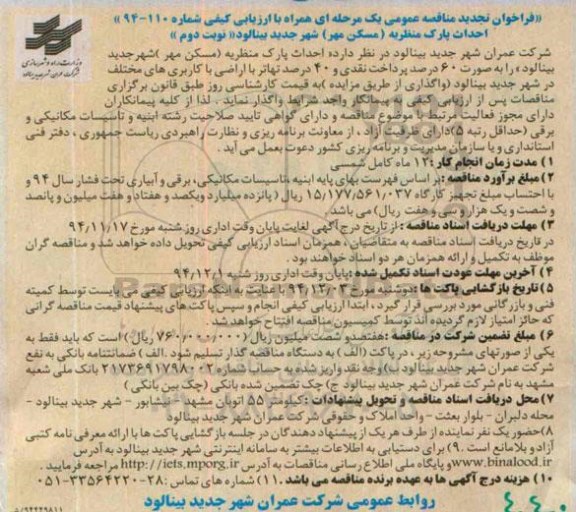 «فراخوان تجدید مناقصه عمومی یک مرحله ای همراه با ارزیابی کیفی شماره ۱۱۰-۹۴»
احداث پارک منظریه ( مسکن مهر) شهر جدید بینالود« نوبت دوم »
شرکت عمران شهر جدید بینالود در نظر دارد« احداث پارک منظریه (مسکن مهر )شهرجدید
بینالود » را به صورت ۶۰ درصد پرداخت نقدی و ۴۰ درصد تهاتر با اراضی با کاربری های مختلف
در شهر جدید بینالود (واگذاری از طریق مزایده )به قیمت کارشناسی روز طبق قانون برگزاری
مناقصات پس از ارزیابی کیفی به پیمانکار واجد شرایط واگذار نماید . لذا از کلیه پیمانکاران
دارای مجوز فعالیت مرتبط با موضوع مناقصه و دارای گواهی تایید صلاحیت رشته ابنیه و تاسیسات مکانیکی و
برقی (حداقل رتبه ۵)دارای ظرفیت آزاد ، از معاونت برنامه ریزی و نظارت راهبردی ریاست جمهوری ، دفتر فنی
استانداری و یا سازمان مدیریت و برنامه ریزی کشور دعوت بعمل می آید .
۱) مدت زمان انجام کار :۱۲ ماه کامل شمسی
۲)مبلغ برآورد مناقصه :بر اساس فهرست بهای پایه ابنیه ،تاسیسات مکانیکی، برقی و آبیاری تحت فشار سال ۹۴ و
با احتساب مبلغ تجهیز کارگاه ۱۵,۱۷۷,۵۶۱,۰۳۷ ریال ( پانزده میلیارد ویکصد و هفتاد و هفت میلیون و پانصد
و شصت و یک هزار و سی و هفت ریال) می باشد .
۳) مهلت دریافت اسناد مناقصه : از تاریخ درج آگهی لغایت پایان وقت اداری روز شنبه مورخ ۹۴,۱۱,۱۷
در تاریخ دریافت اسناد مناقصه به متقاضیان ، همزمان اسناد ارزیابی کیفی تحویل داده خواهد شد و مناقصه گران
موظف به تکمیل و ارائه همزمان هر دو اسناد خواهند بود .
۴) آخرین مهلت عودت اسناد تکمیل شده :پایان وقت اداری روز شنبه ۹۴,۱۲,۱
۵) تاریخ بازگشایی پاکت ها :دوشنبه مورخ ۹۴,۱۲,۰۳ با عنایت به اینکه ارزیابی کیفی می بایست توسط کمیته
فنی و بازرگانی مورد بررسی قرار گیرد ، ابتدا ارزیابی کیفی انجام و سپس پاکت های پیشنهاد قیمت مناقصه گرانی
که حائز امتیاز لازم گردیده اند توسط کمیسیون مناقصه افتتاح خواهد شد .
۶) مبلغ تضمین شرکت در مناقصه :هفتصدو شصت میلیون ریال (۷۶۰/۰۰۰/۰۰۰ ریال ) است که باید فقط به
یکی از صورتهای مشروحه زیر ، در پاکت (الف ) به دستگاه مناقصه گذار تسلیم شود .الف ) ضمانتنامه بانکی به نفع
شرکت عمران شهر جدید بینالود ب)وجه نقد واریز شده به حساب شماره ۲۱۷۳۶۹۱۷۹۸۰۰۲ بانک ملی شعبه
مشهد به نام شرکت عمران شهر جدید بینالود ج) چک تضمین شده بانکی (چک بین بانکی )
۷) محل دریافت اسناد مناقصه و تحویل پیشنهادات :کیلومتر ۵۵ اتوبان مشهد - نیشابور - شهر جدید بینالود -
محله دلبران - بلوار بعثت - واحد املاک و حقوقی شرکت عمران شهر جدید بینالود
۸)حضور یک نفر نماینده از طرف هر یک از پیشنهاد دهندگان در جلسه بازگشایی پاکت ها با ارائه معرفی نامه کتبی
آزاد و بلامانع است .۹) برای دستیابی به اطلاعات بیشتر به سامانه اینترنتی شهر جدید بینالود به آدرس
www.binalood.irو پایگاه ملی اطلاع رسانی مناقصات به آدرس http://iets.mporg.ir مراجعه فرمایید .
۱۰) هزینه درج آگهی ها به عهده برنده مناقصه می باشد .۱۱) شماره های تماس :۲۸-۳۳۵۶۴۲۲۰-۰۵۱
روابط عمومی شرکت عمران شهر جدید بینالود